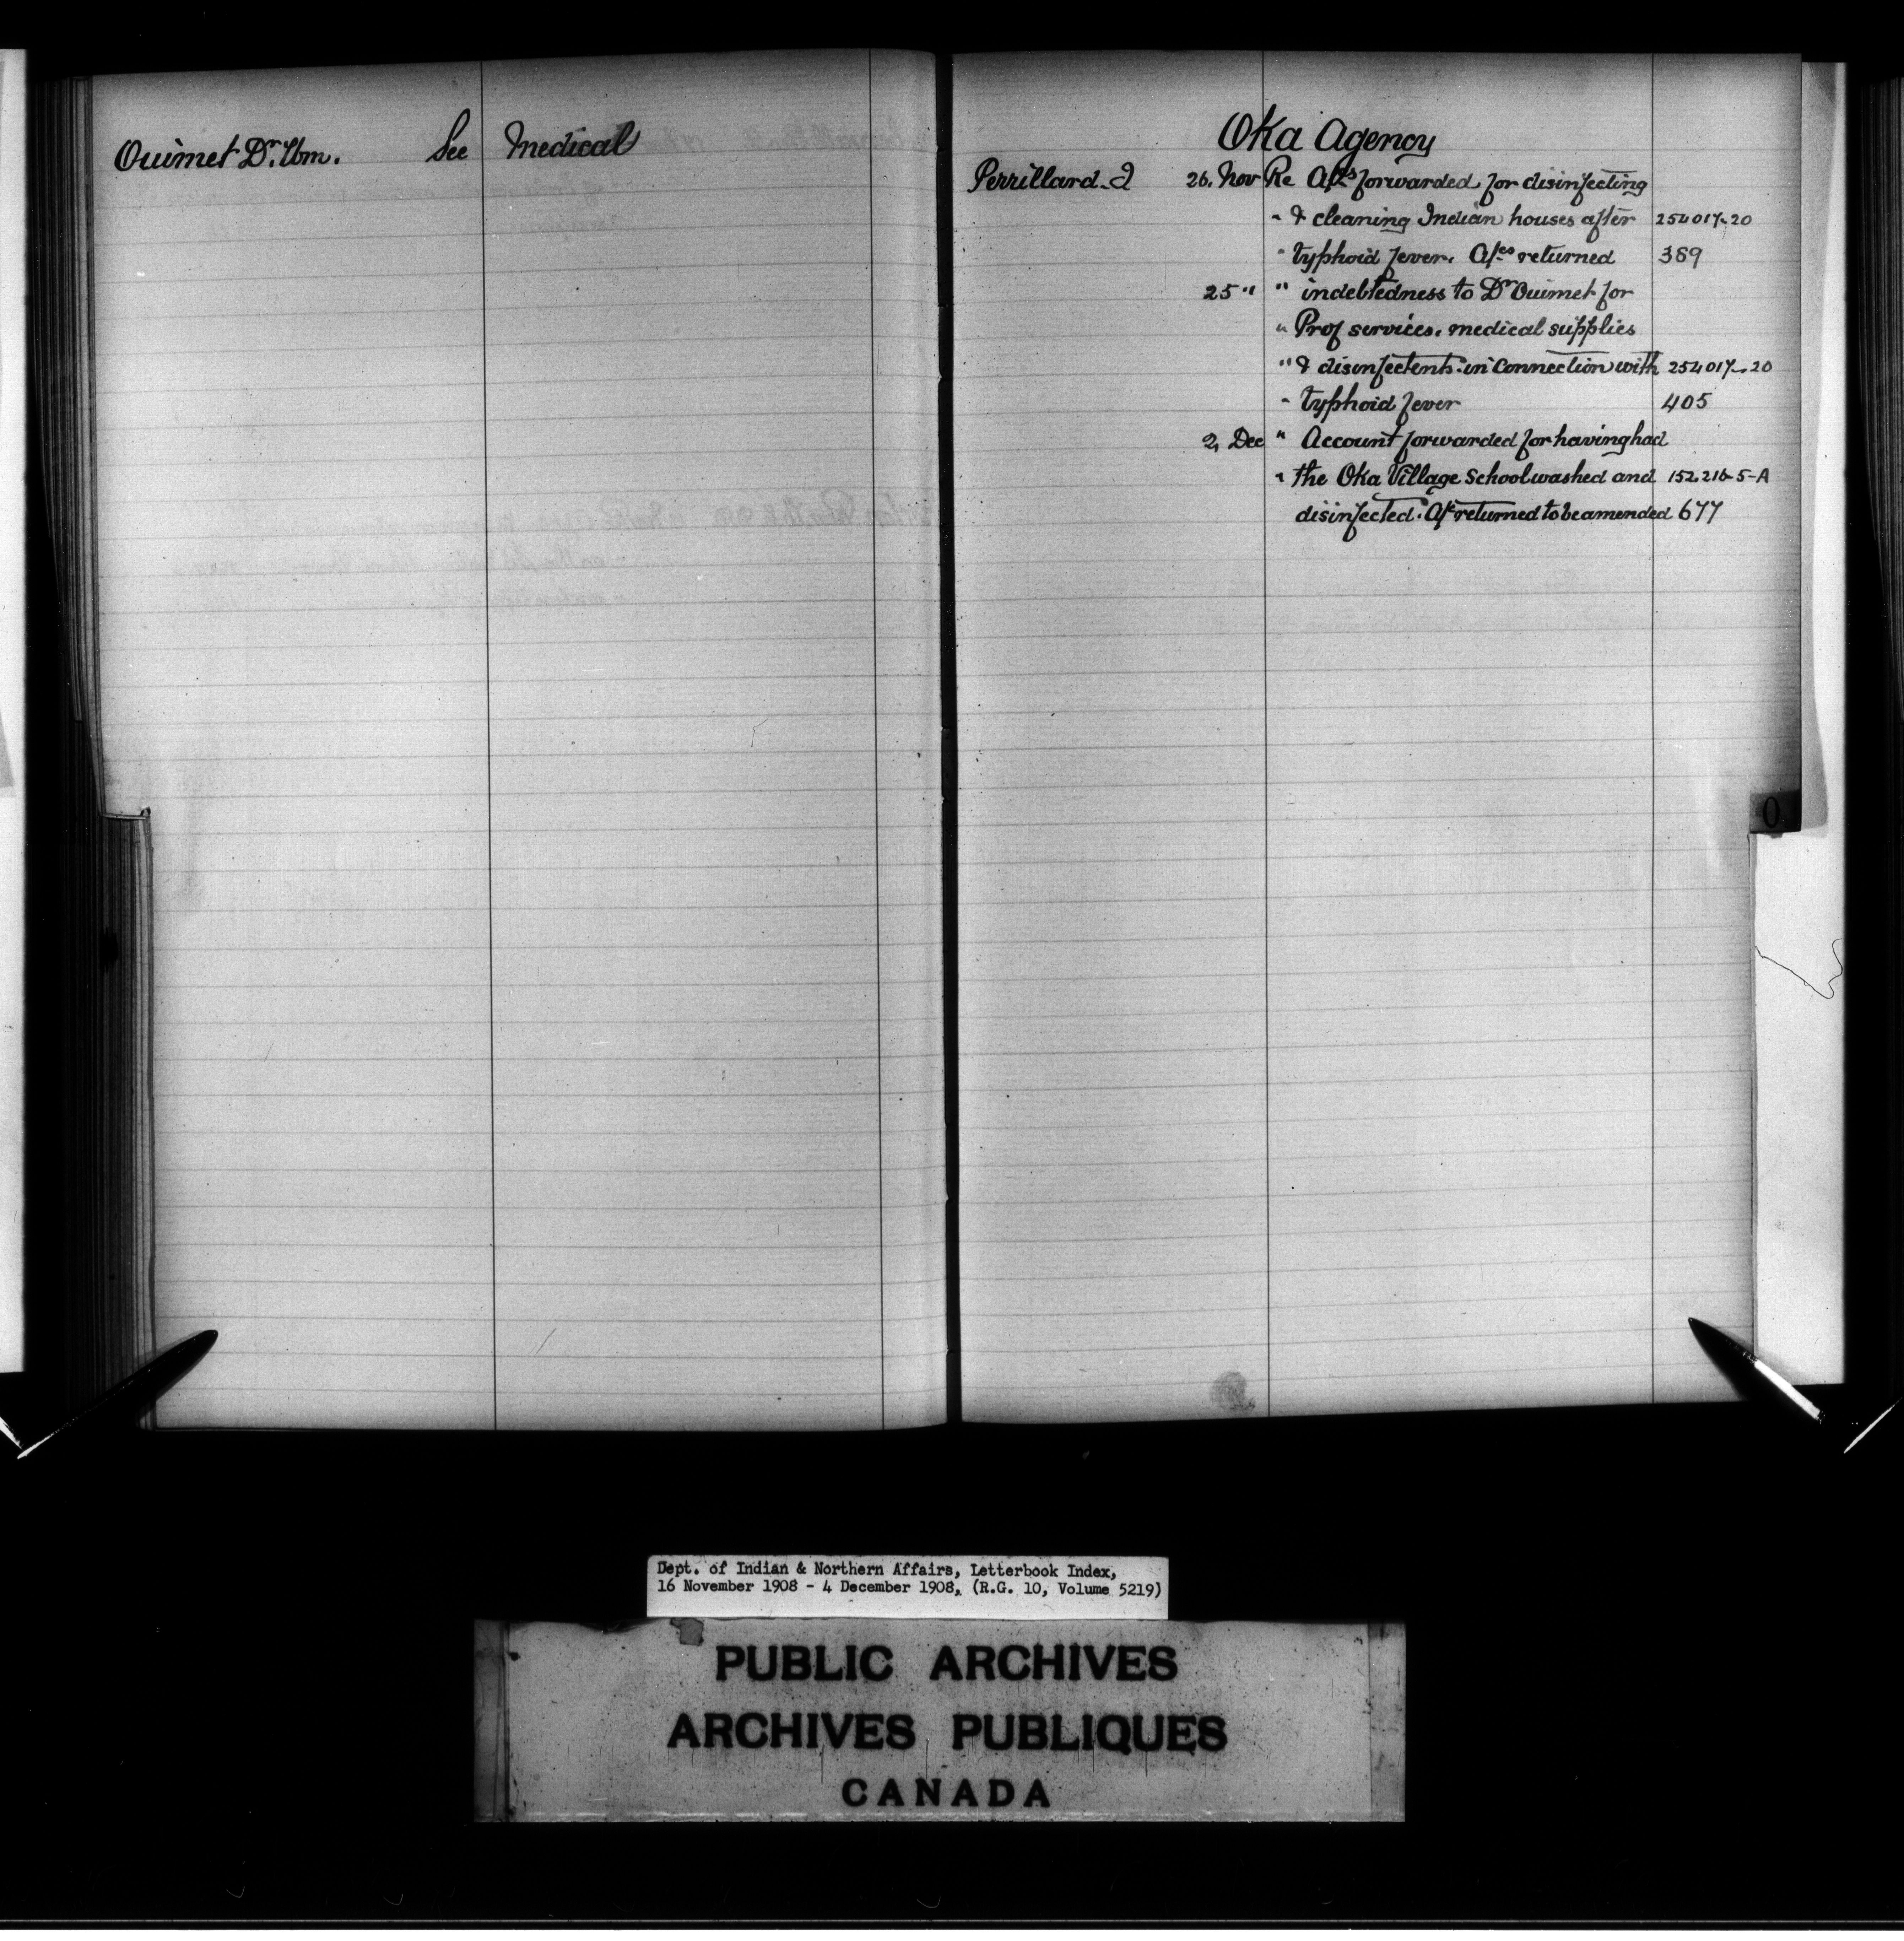 Ouimet Dr. Wm. See Medical
Oka Agency
Perrillard J 26. Nov Re A/cs forwarded for disinfecting
" & cleaning Indian houses after 254017-20
" typhoid fever. A/cs returned 389
25 " " indebtedness to Dr Ouimet for
" Prof services. medical supplies
" & disinfectents in connection with 254017-20
" typhoid fever 405
2, Dec " Account forwarded for having had
" the Oka Village School washed and 152.216-5-A
disinfected. A/c returned to be amended 677
O
Dept. of Indian & Northern Affairs, Letterbook Index,
16 November 1908 - 4 December 1908, (R.G. 10, Volume 5219)
PUBLIC ARCHIVES
ARCHIVES PUBLIQUES
CANADA